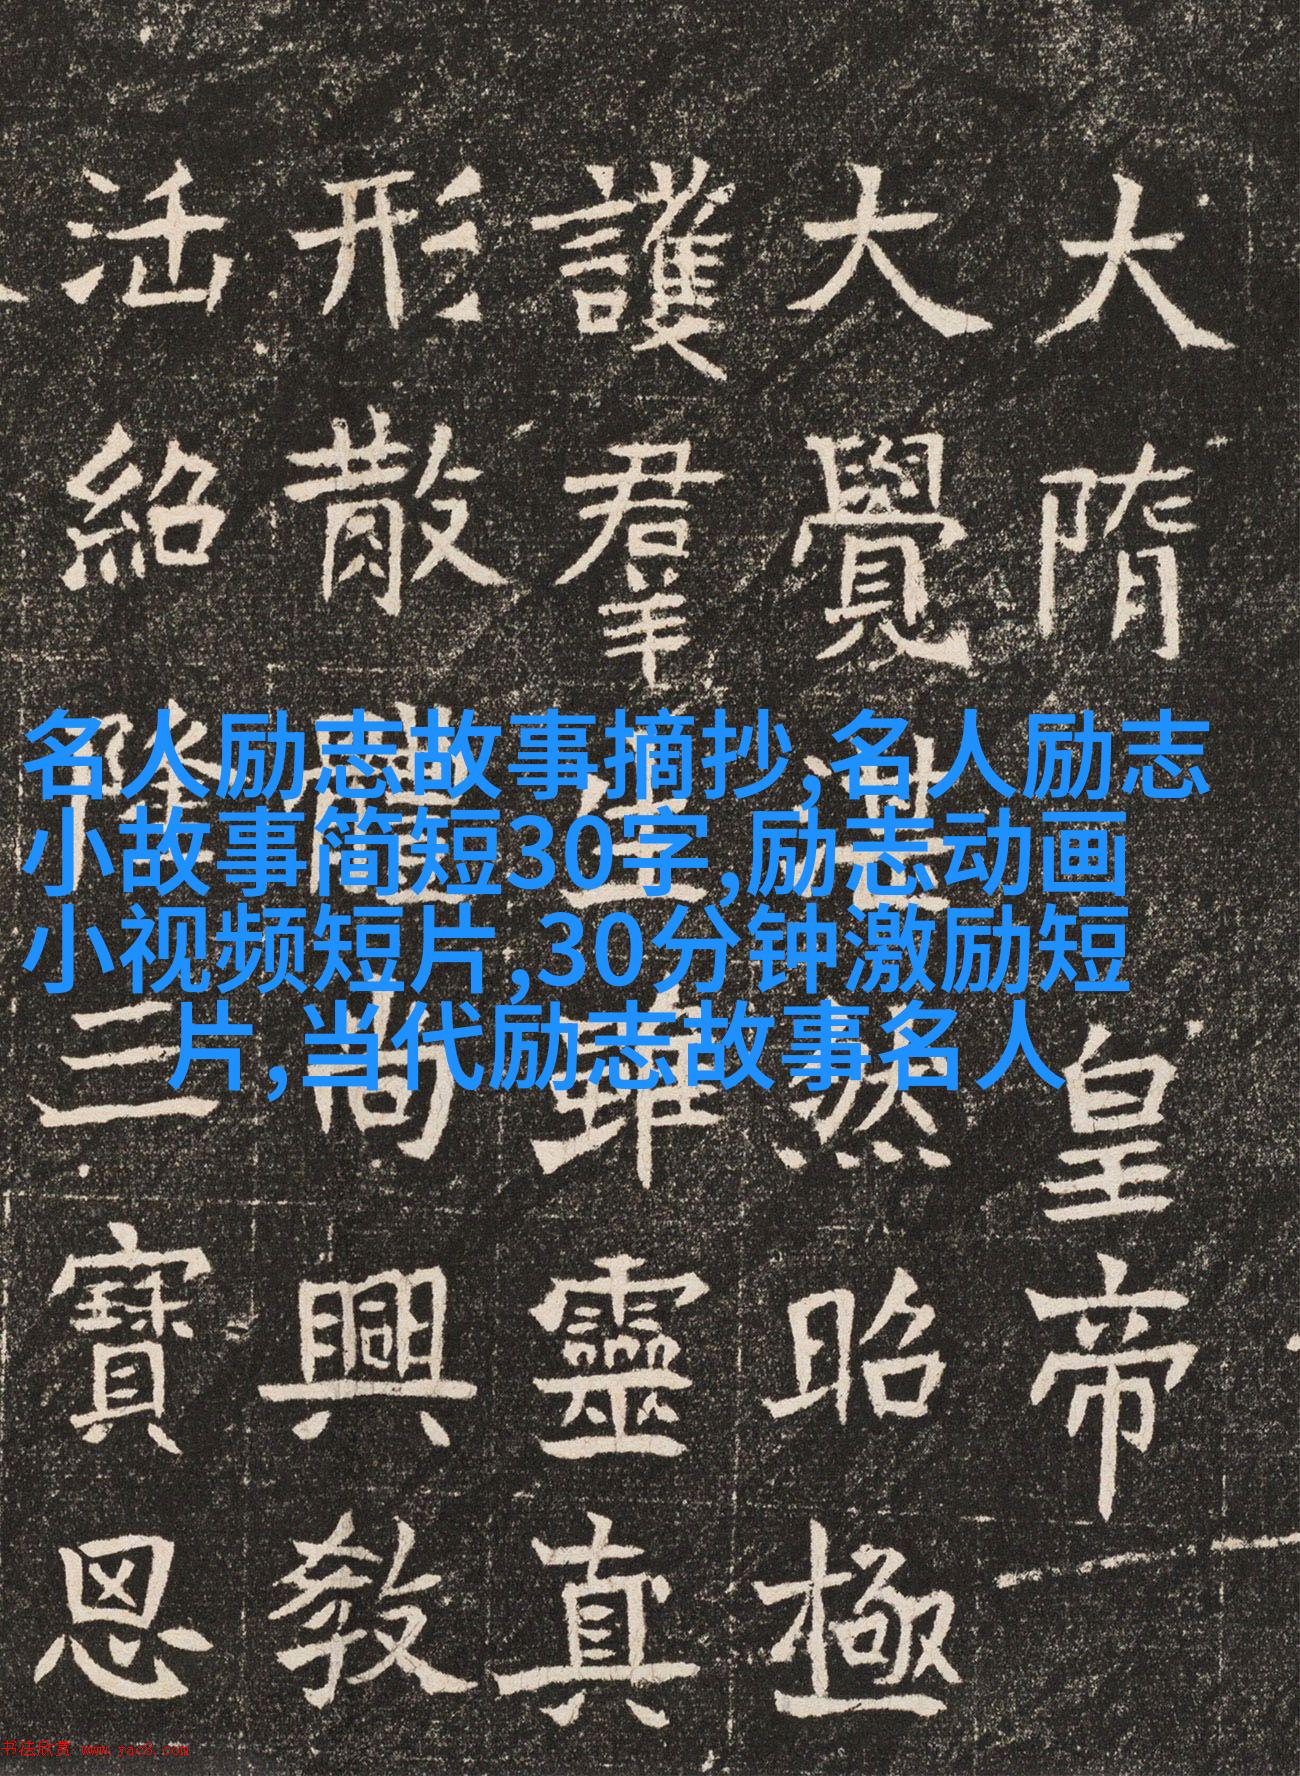 大隋皇帝
大覺湛然昭極
護羣生雖靈真
形散體尚興教
活紹隆三寶恩
名人励志故事摘抄,名人励志
小故事简短30字,励志动画
小视频短片,30分钟激励短
片,当代励志故事名人
书法欣赏 www.yac8.com